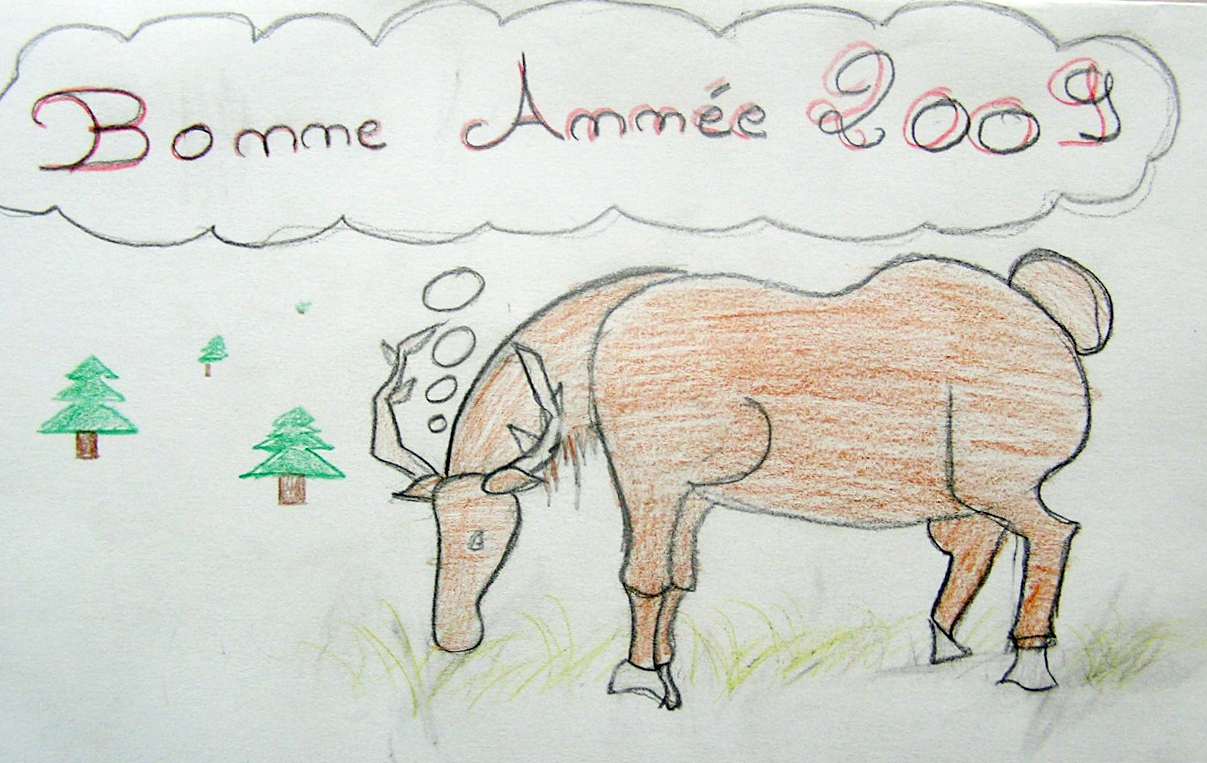 Bonne Année 2009